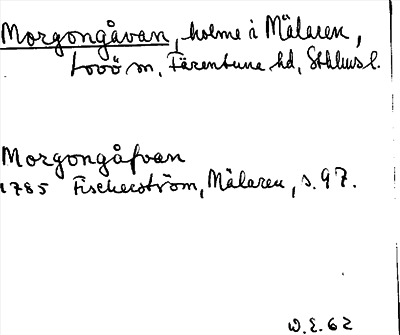 Morgongåvan, holme i Mälaren,
Lovö sn, Färentuna hd, Sthlms l.
Morgongåfvan
1785 Fischerström, Mälaren, s. 97.
W.E. 62